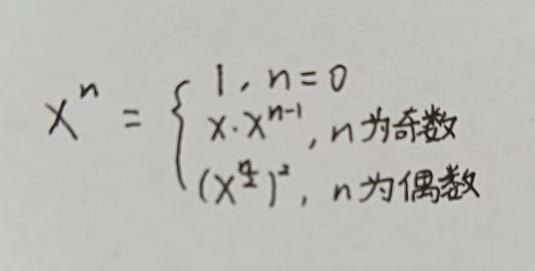 xⁿ = { 1, n=0
x·xⁿ⁻¹, n为奇数
(x^{n/2})², n为偶数